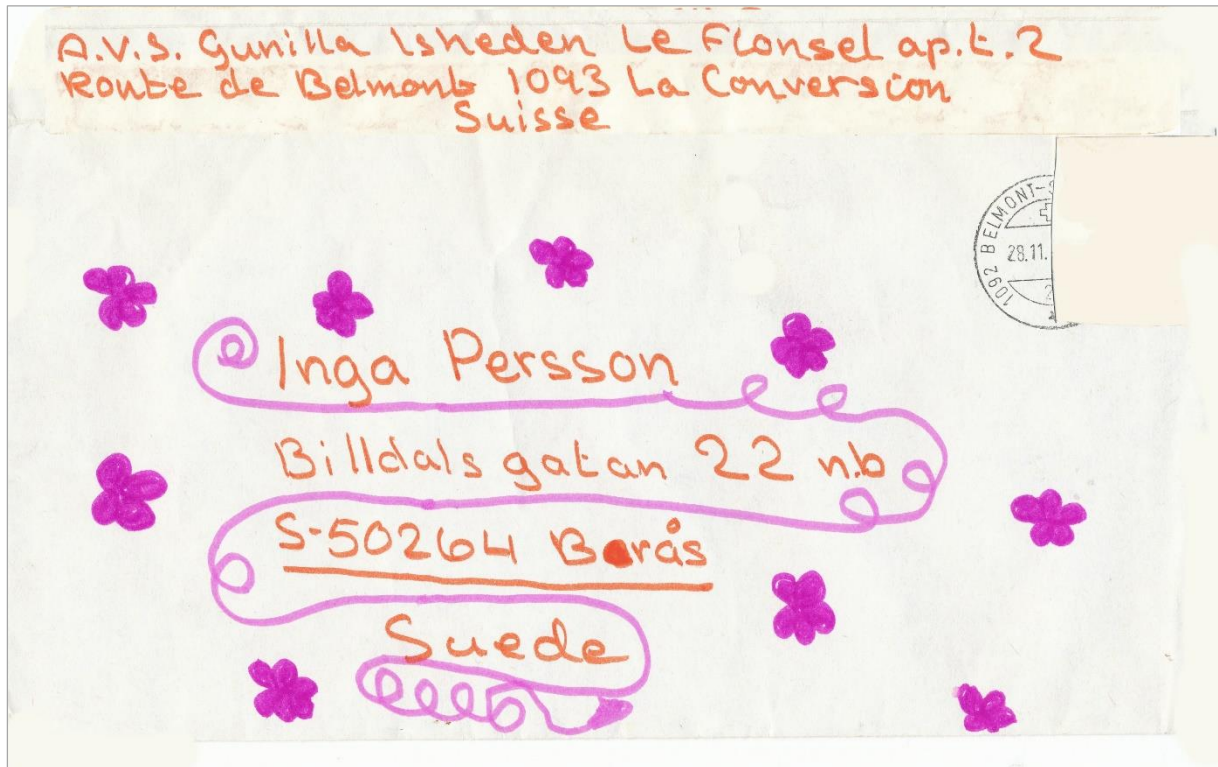 A.V.S. Gunilla Isheden Le Flonsel ap.t.2
Route de Belmont 1093 La Conversion
Suisse
1092 BELMONT-
28.11.
Inga Persson
Billdals gatan 22 n.b
S-50264 Borås
Suede